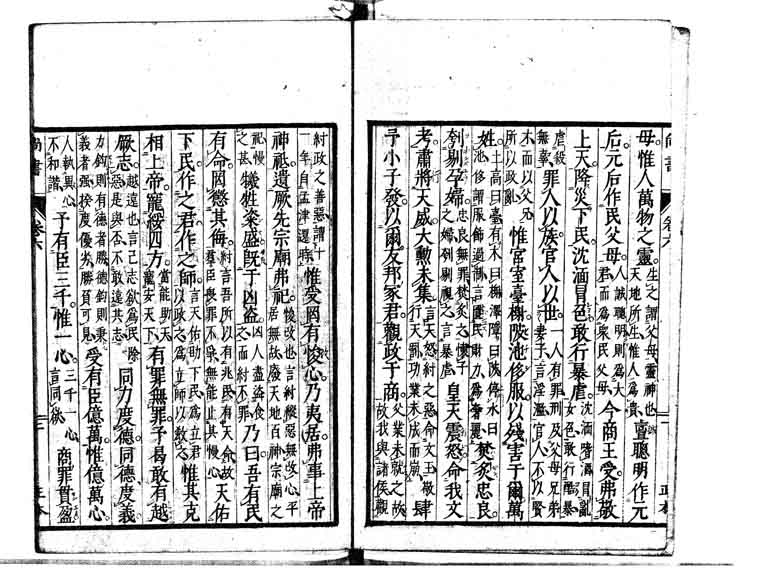 母惟人萬物之靈。生之謂父母靈神也天地所生惟人爲貴亶聰明作元
后元后作民父母。人誠聰明則爲大君而爲衆民父母今商王受弗敬
上天降災下民沈湎冒色敢行暴虐。沈湎嗜酒冒亂女色敢行酷暴
虐殺無辜罪人以族官人以世。一人有罪刑及父母兄弟妻子言淫濫官人不以賢
才而以父兄所以政亂惟宮室臺榭陂池侈服以殘害于爾萬
姓。土高曰臺有木曰榭澤障曰陂停水曰池侈謂服飾過制言匱民財力爲奢麗焚炙忠良
刳剔孕婦。忠良無罪焚炙之懷子之婦刳剔視之言暴虐皇天震怒命我文
考肅將天威大勳未集。言天怒紂之惡命文王敬行天罰功業未成而崩肆
予小子發以爾友邦冢君觀政于商。父業未就之故故我與諸侯觀
紂政之善惡謂十一年自孟津還時惟受罔有悛心乃夷居弗事上帝
神祇遺厥先宗廟弗祀。悛改也言紂縱惡無改心平居無故廢天地百神宗廟之
祀慢之甚犧牲粢盛既于凶盜。凶人盡盜食之而紂不罪乃曰吾有民
有命罔懲其侮。紂言吾所以有兆民有天命故羣臣畏罪不爭無能止其慢心天佑
下民作之君作之師。言天佑助下民爲立君以政之爲立師以教之惟其克
相上帝寵綏四方。當能助天寵安天下有罪無罪予曷敢有越
厥志。越遠也言己志欲爲民除惡是與否不敢遠其志同力度德同德度義
力鈞則有德者勝德鈞則秉義者強揆度優劣勝負可見受有臣億萬惟億萬心。
人執異心不和諧予有臣三千惟一心。三千一心言同欲商罪貫盈
尚書
卷六
正本